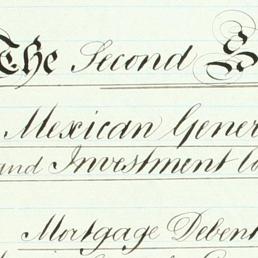 The Second S
Mexican Gener
and Investment Co
Mortgage Debent